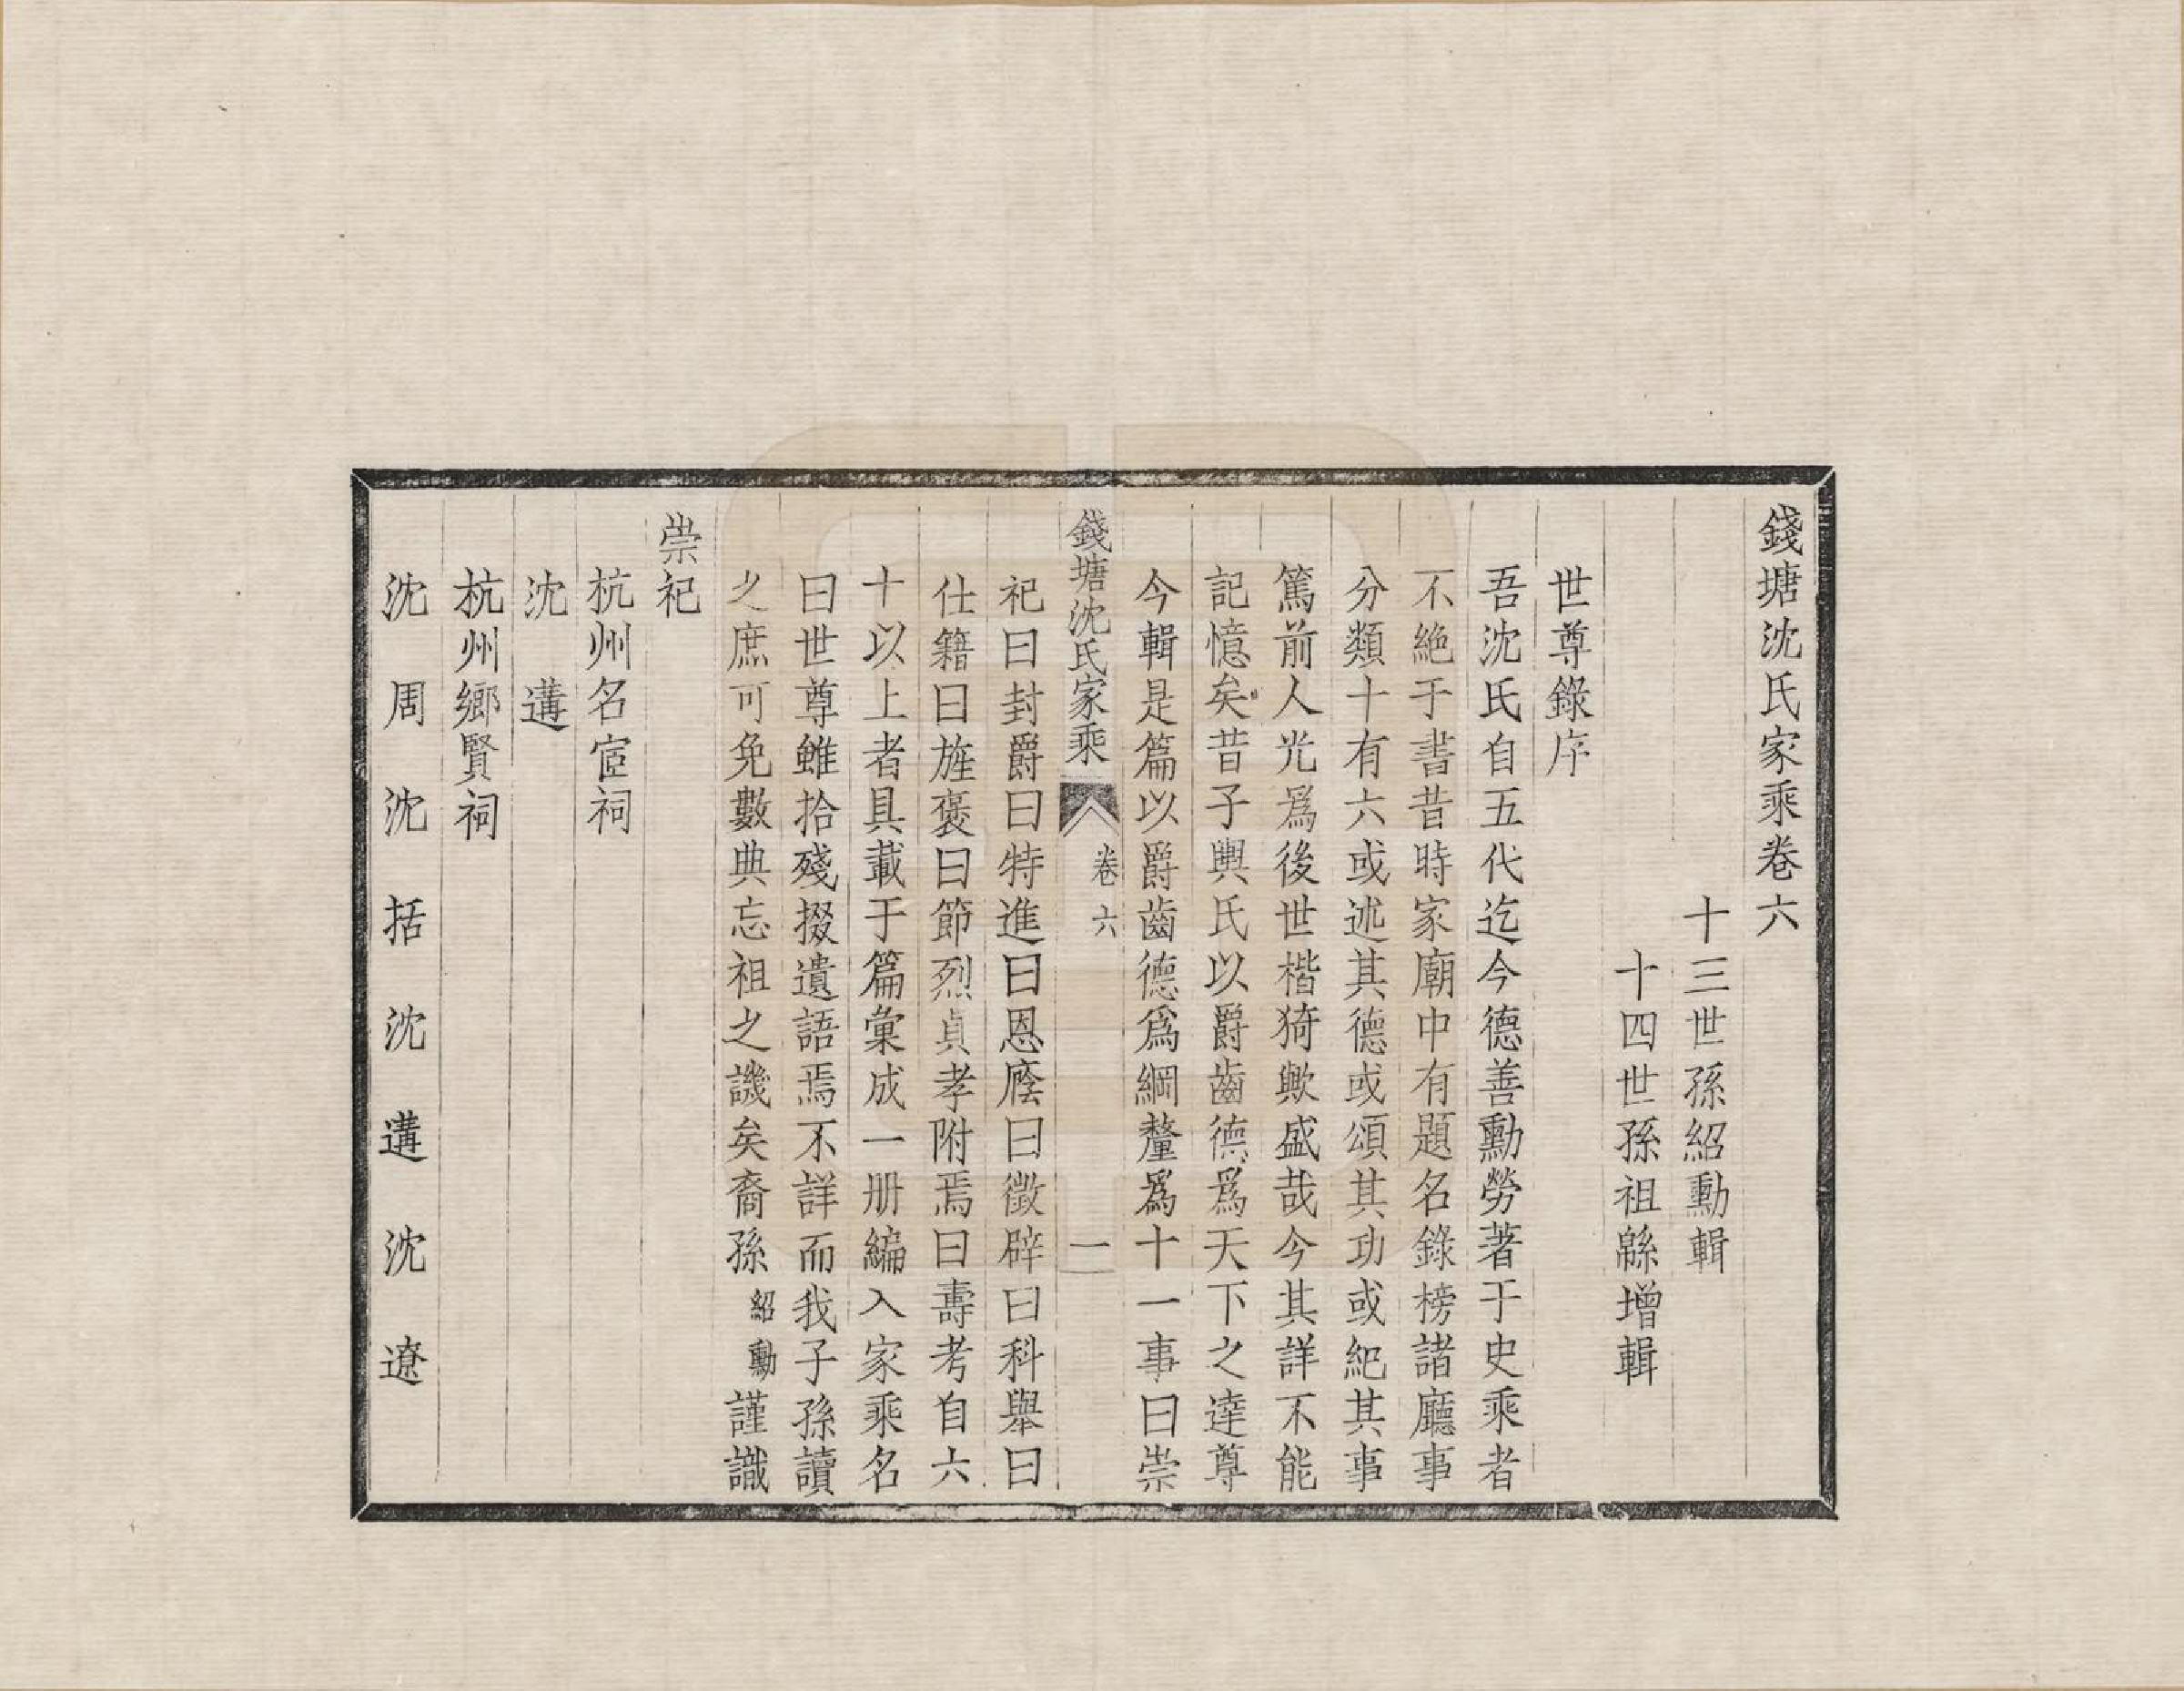 錢塘沈氏家乘卷六
十三世孫紹勳輯
十四世孫祖緜增輯
世尊錄序
吾沈氏自五代迄今德善勳勞著于史乘者
不絶于書昔時家廟中有題名錄榜諸廳事
分類十有六或述其德或頌其功或紀其事
篤前人光爲後世楷猗歟盛哉今其詳不能
記憶矣昔子輿氏以爵齒德爲天下之達尊
今輯是篇以爵齒德爲綱釐爲十一事曰崇
錢塘沈氏家乘 卷六 一
祀曰封爵曰特進曰恩廕曰徵辟曰科舉曰
仕籍曰旌褒曰節烈貞孝附焉曰壽考自六
十以上者具載于篇彙成一册編入家乘名
曰世尊雖拾殘掇遺語焉不詳而我子孫讀
之庶可免數典忘祖之譏矣裔孫紹勳謹識
崇祀
杭州名宦祠
沈遘
杭州鄉賢祠
沈周 沈括 沈遘 沈遼